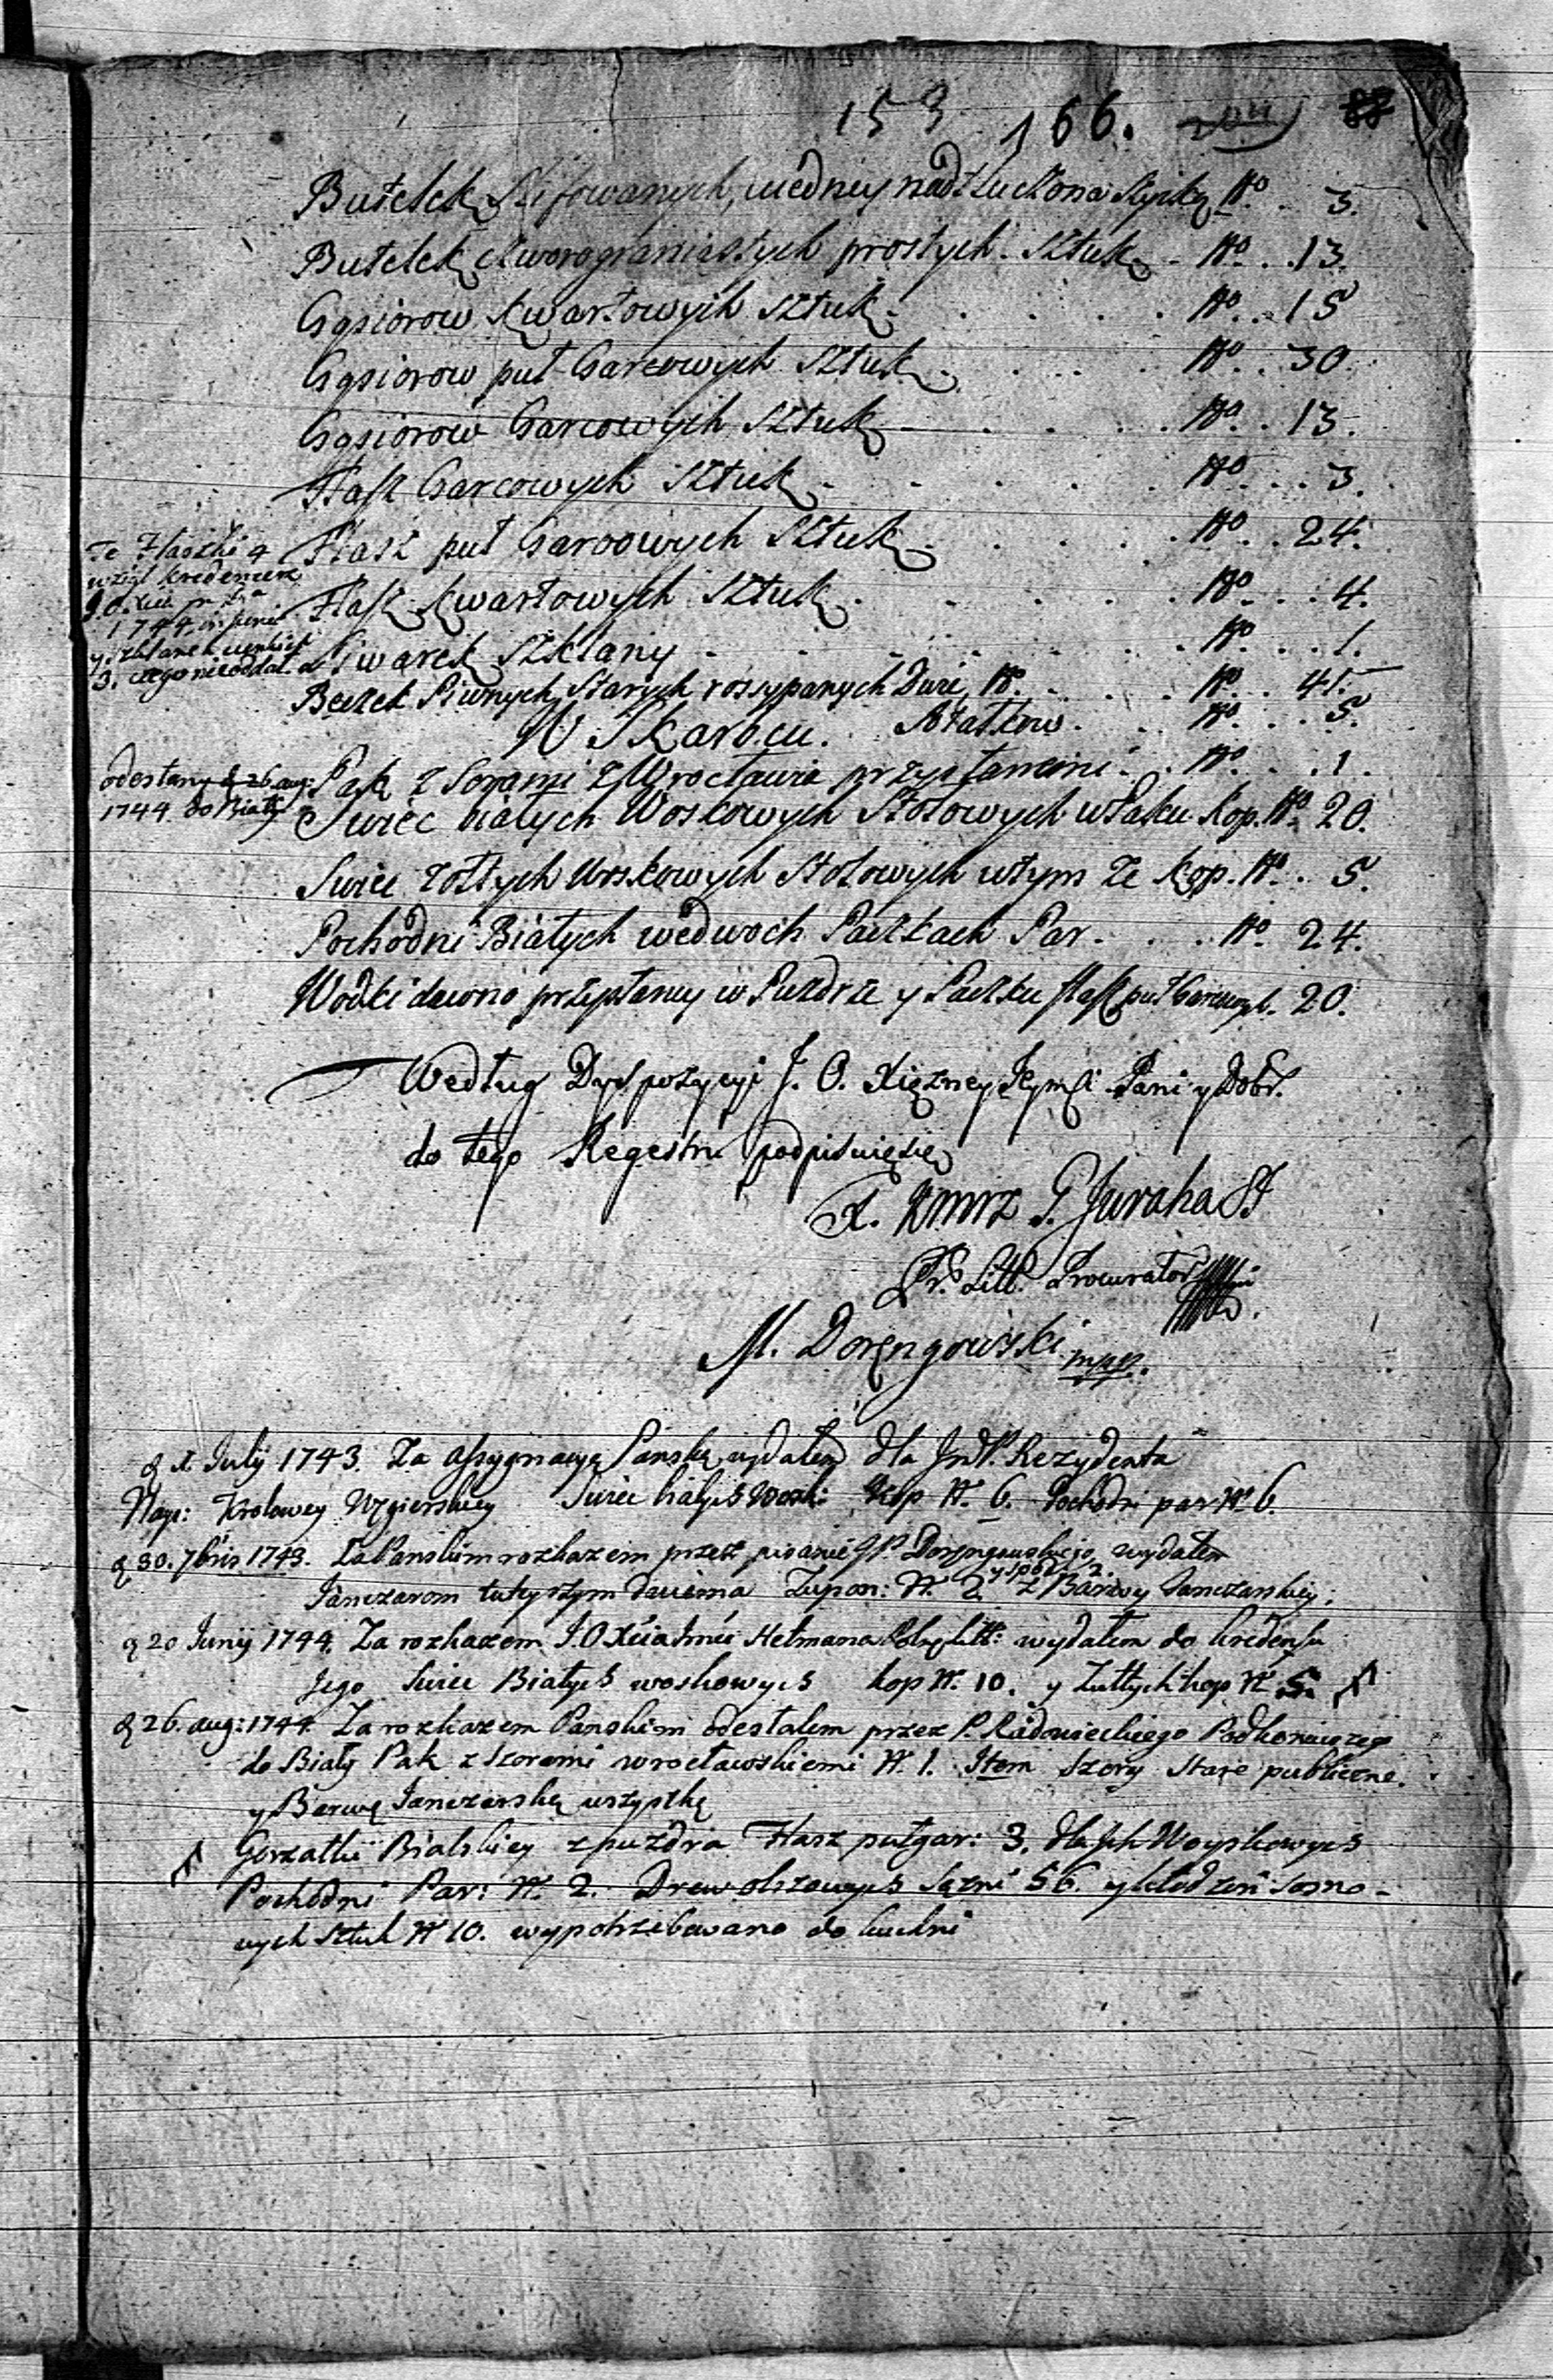 153 166. 88
Butelek Slifowanych, w iedney nadtłuczona szyika No. 3.
Butelek czworograniastych prostych. Sztuk No. 13.
Gąsiorow kwartowych Sztuk No. 15
Gąsiorow puł Garcowych Sztuk No. 30.
Gąsiorow Garcowych Sztuk No. 13.
Flasz Garcowych Sztuk No. 3.
Flasz puł Garcowych Sztuk No. 24.
Te Flaszki 4
wziął kredencerz
1744
3. czego nie oddał.
Flasz kwartowych Sztuk No. 4.
Szklany No. 1.
Beczek Piwnych Starych rossypanych Duzi No. No. 41.
W Skarbcu. No. 5.
odesłany d. 26. aug:
1744. do Biały
Pak z Sorami z Wrocławia przysłanemi No. 1.
Swiec białych Woskowych Stołowych w Paku kop. No. 20.
Swiec żołtych Woskowych Stołowych w tym że kop. No. 5.
Pochodni Białych we dwoch Paczkach Par No. 24.
Wodki dawno przysłaney w Puzdrze y Paczku flasz puł Garcowych. 20.
Według Dyspozycyi J. O. Xiężney Jeymci Pani y Dobr.
do tego Regestru podpisuię się
X. Kmrz P. Juraha SJ
Pr. Litt. Procurator
M. Doręngowski mpp.
d. X July 1743. Za assygnacyą Panską wydałem dla JmP. Rezydenta
Nayi: Krolowey Węgierskiey Swiec białych Woski: kop N. 6. Pochodni par N. 6.
d. 30. 7bris 1743. Za Panskim rozkazem przez pisanie JP. Doręngowskiego wydałem
Janczarom tuteyszym dwiema Zupan: N. 2 y spod: 2. z Barwy Janczarskiey.
d. 20 Junij 1744. Za rozkazem J.O Xcia Jmci Hetmana Polo Litt: wydałem do kredensu
Jego Swiec Białych woskowych kop N. 10. y Zułtych kop N. 5.
d. 26. aug: 1744. Za rozkazem Panskim odesłałem przez P. Radowieckiego Podkoniuszego
do Biały Pak z szorami wrocławskiemi N. 1. Item szory stare publiczne.
y Barwę Janczarską wszystką
Gorzałki Bialskiey z puzdra Flasz puł gar: 3. dla Ich Woyskowych
Pochodni Par: N. 2. Drew olszowych sążni 56. y kłodzin sosno-
wych sztuk N 10. wypotrzebowano do kuchni